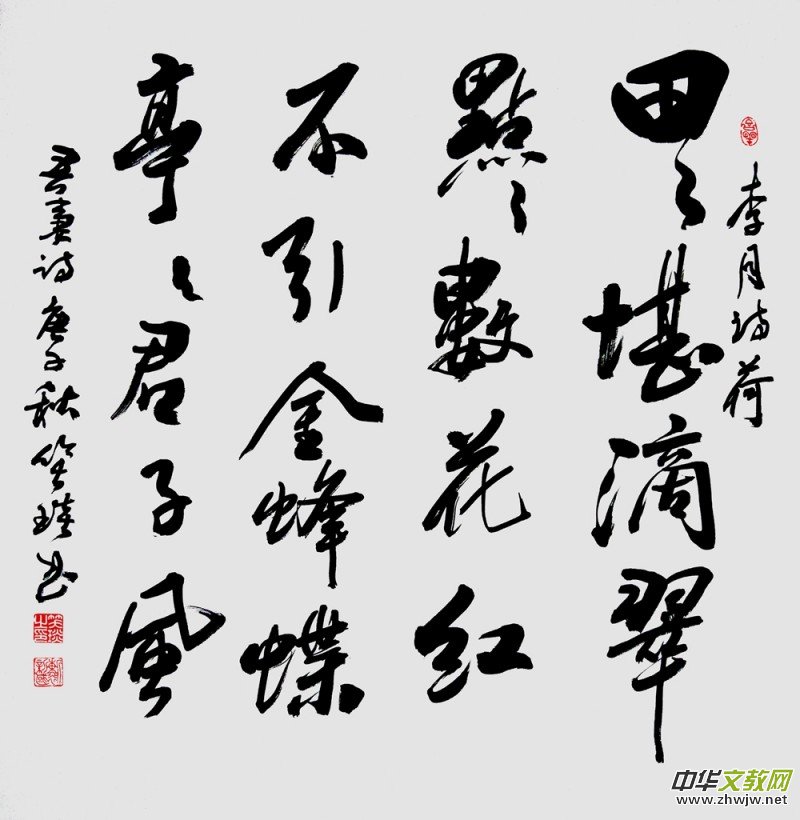 李月诗荷
田々堪滴翠
點々數花紅
不引金蜂蝶
亭々君子風
诗庚子秋笑书
中华文教网
www.zhwjw.net